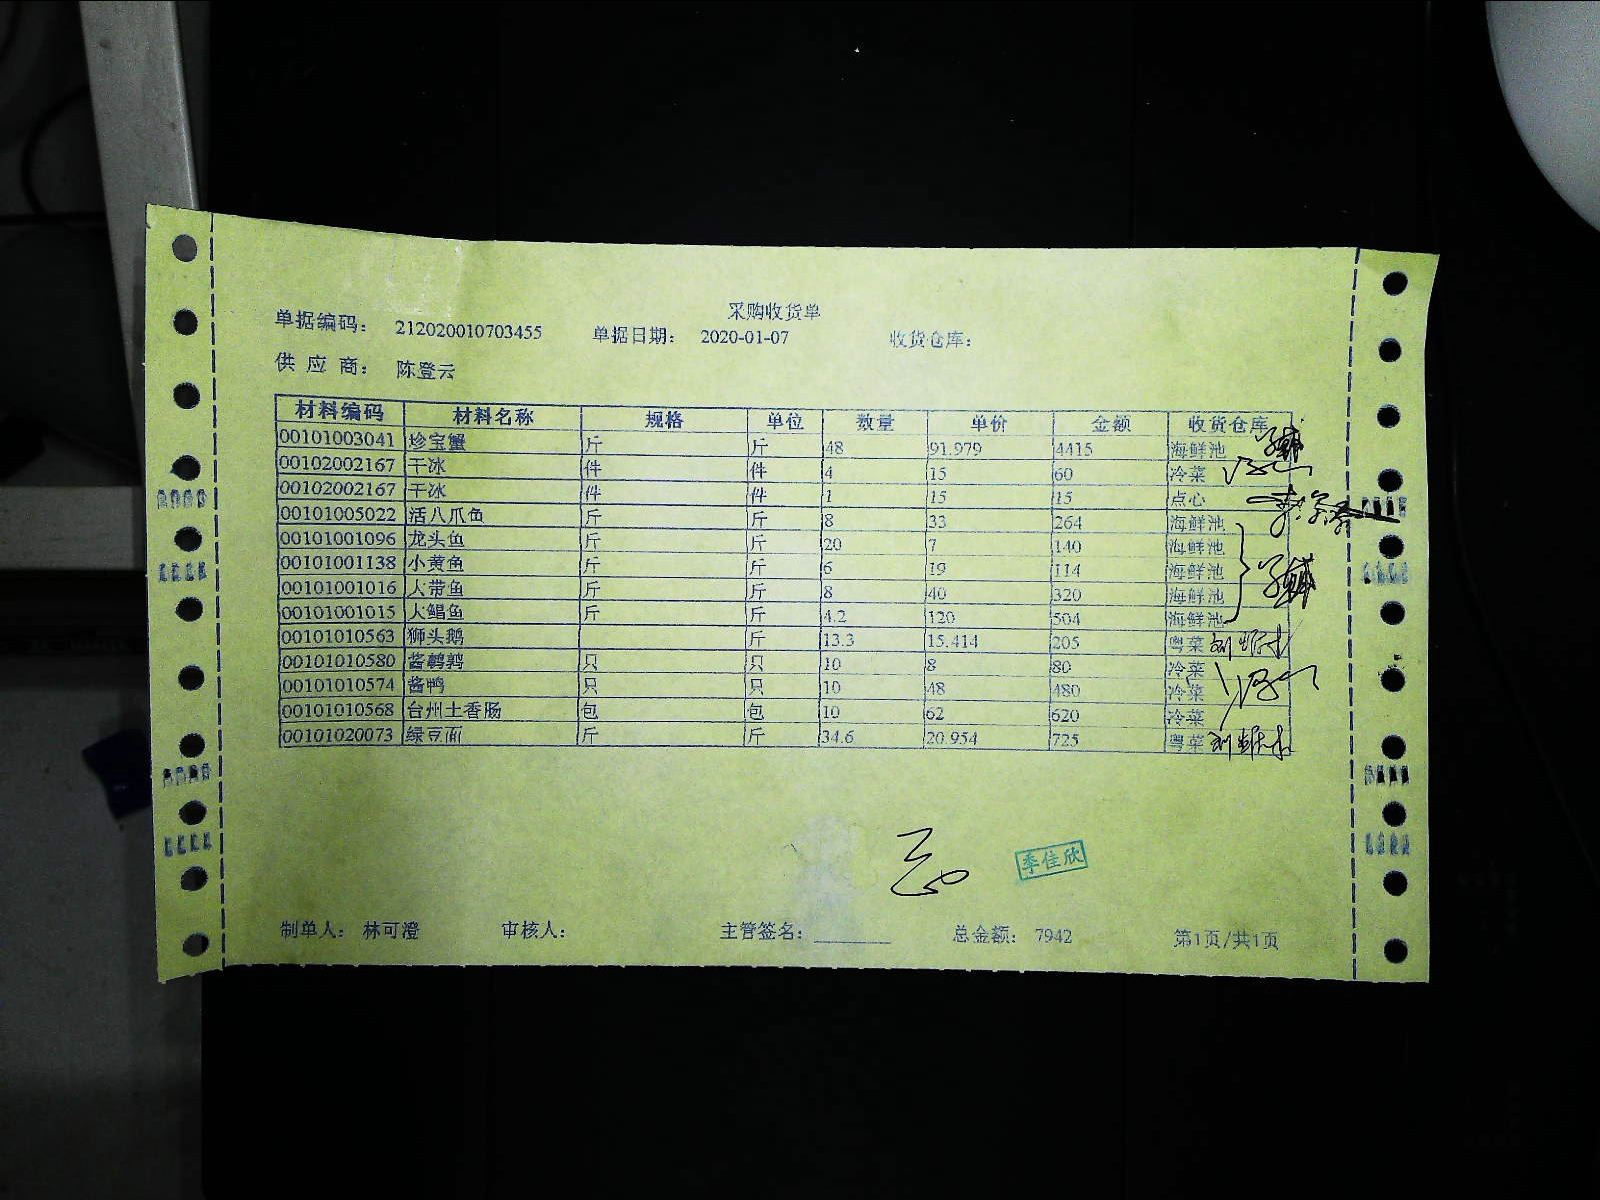 采购收货单
单据编码： 212020010703455 单据日期： 2020-01-07 收货仓库：
供 应 商： 陈登云
材料编码 材料名称 规格 单位 数量 单价 金额 收货仓库
00101003041 珍宝蟹 斤 斤 48 91.979 4415 海鲜池
00102002167 干冰 件 件 4 15 60 冷菜
00102002167 干冰 件 件 1 15 15 点心
00101005022 活八爪鱼 斤 斤 8 33 264 海鲜池
00101001096 龙头鱼 斤 斤 20 7 140 海鲜池
00101001138 小黄鱼 斤 斤 6 19 114 海鲜池
00101001016 大带鱼 斤 斤 8 40 320 海鲜池
00101001015 大鲳鱼 斤 斤 4.2 120 504 海鲜池
00101010563 狮头鹅 斤 13.3 15.414 205 粤菜
00101010580 酱鹌鹑 只 只 10 8 80 冷菜
00101010574 酱鸭 只 只 10 48 480 冷菜
00101010568 台州土香肠 包 包 10 62 620 冷菜
00101020073 绿豆面 斤 斤 34.6 20.954 725 粤菜
季佳欣
制单人： 林可澄 审核人： 主管签名：________ 总金额： 7942 第1页/共1页